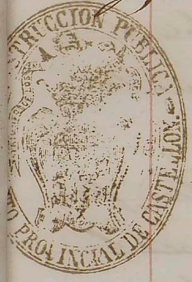 STRUCCION PUBLICA
TO PROVINCIAL DE CASTELLON